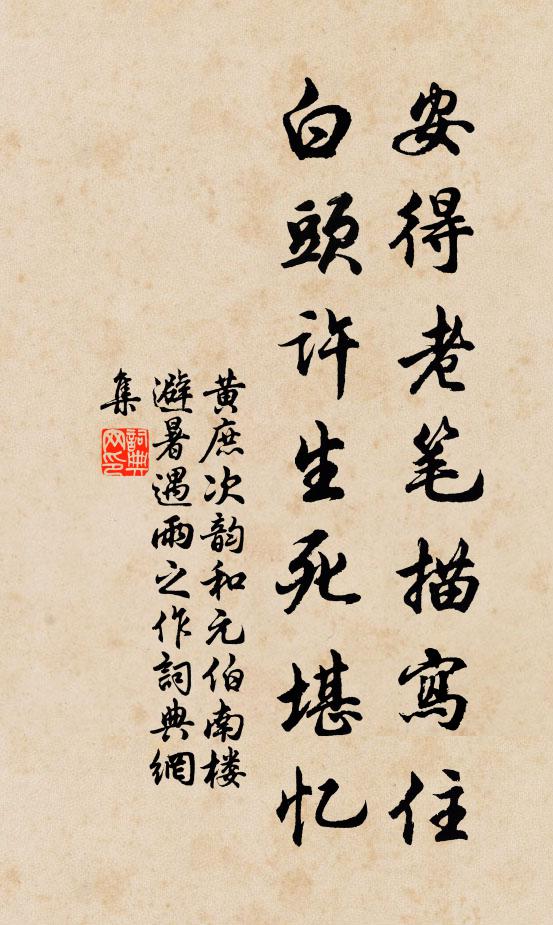 安得老笔描寫住
白頭许生死堪忆
黄庶次韵和元伯南楼
避暑遇雨之作詞典網
集
詞典
网印